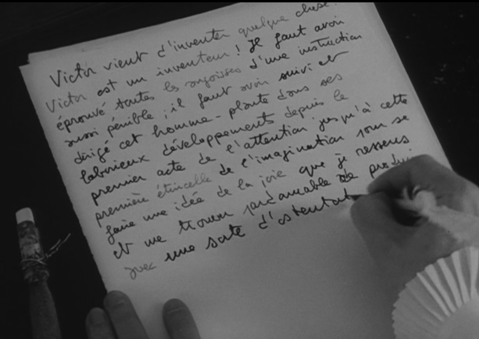 Victor vient d'inventer quelque chose.
Victor est un inventeur ! Il faut avoir
éprouvé toutes les angoisses d'une instruction
aussi pénible ; il faut avoir suivi et
dirigé cet homme-plante dans ses
laborieux développements depuis le
premier acte de l'attention jusqu'à cette
première étincelle de l'imagination pour se
faire une idée de la joie que je ressens
et me trouver pardonnable de produire
avec une sorte d'ostentat